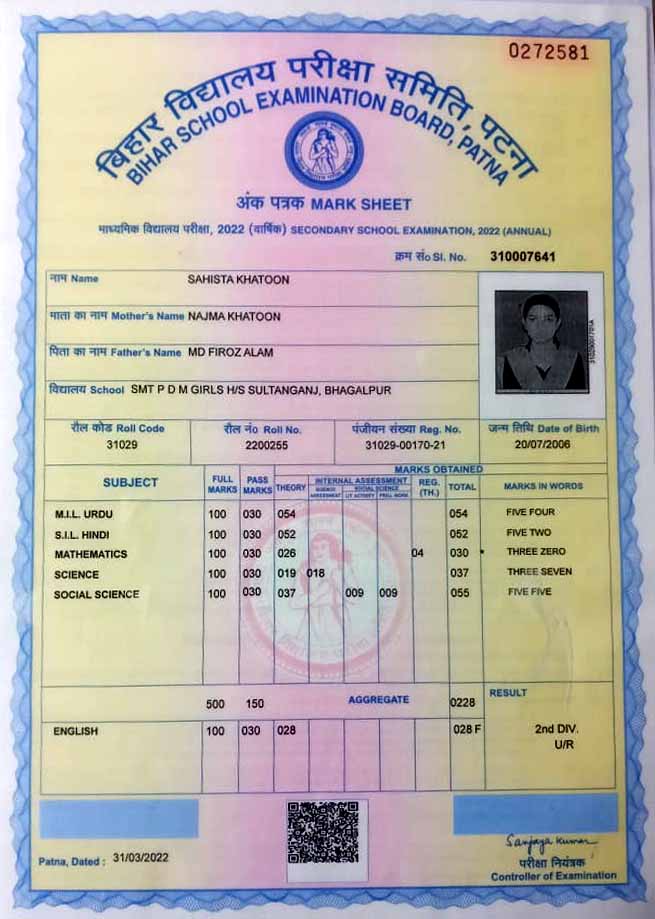 0272581
बिहार विद्यालय परीक्षा समिति, पटना
BIHAR SCHOOL EXAMINATION BOARD, PATNA
अंक पत्रक MARK SHEET
माध्यमिक विद्यालय परीक्षा, 2022 (वार्षिक) SECONDARY SCHOOL EXAMINATION, 2022 (ANNUAL)
क्रम सं० Sl. No. 310007641
नाम Name SAHISTA KHATOON
माता का नाम Mother's Name NAJMA KHATOON
पिता का नाम Father's Name MD FIROZ ALAM
विद्यालय School SMT P D M GIRLS H/S SULTANGANJ, BHAGALPUR
रौल कोड Roll Code रौल नं० Roll No. पंजीयन संख्या Reg. No. जन्म तिथि Date of Birth
31029 2200255 31029-00170-21 20/07/2006
MARKS OBTAINED
SUBJECT FULL MARKS PASS MARKS THEORY INTERNAL ASSESSMENT REG. (TH.) TOTAL MARKS IN WORDS
SCIENCE ASSESSMENT SOCIAL SCIENCE
LIT ACTIVITY PROJ. WORK
M.I.L. URDU 100 030 054 054 FIVE FOUR
S.I.L. HINDI 100 030 052 052 FIVE TWO
MATHEMATICS 100 030 026 04 030 * THREE ZERO
SCIENCE 100 030 019 018 037 THREE SEVEN
SOCIAL SCIENCE 100 030 037 009 009 055 FIVE FIVE
500 150 AGGREGATE 0228 RESULT
ENGLISH 100 030 028 028 F 2nd DIV.
U/R
Sanjaya Kumar
Patna, Dated : 31/03/2022
परीक्षा नियंत्रक
Controller of Examination